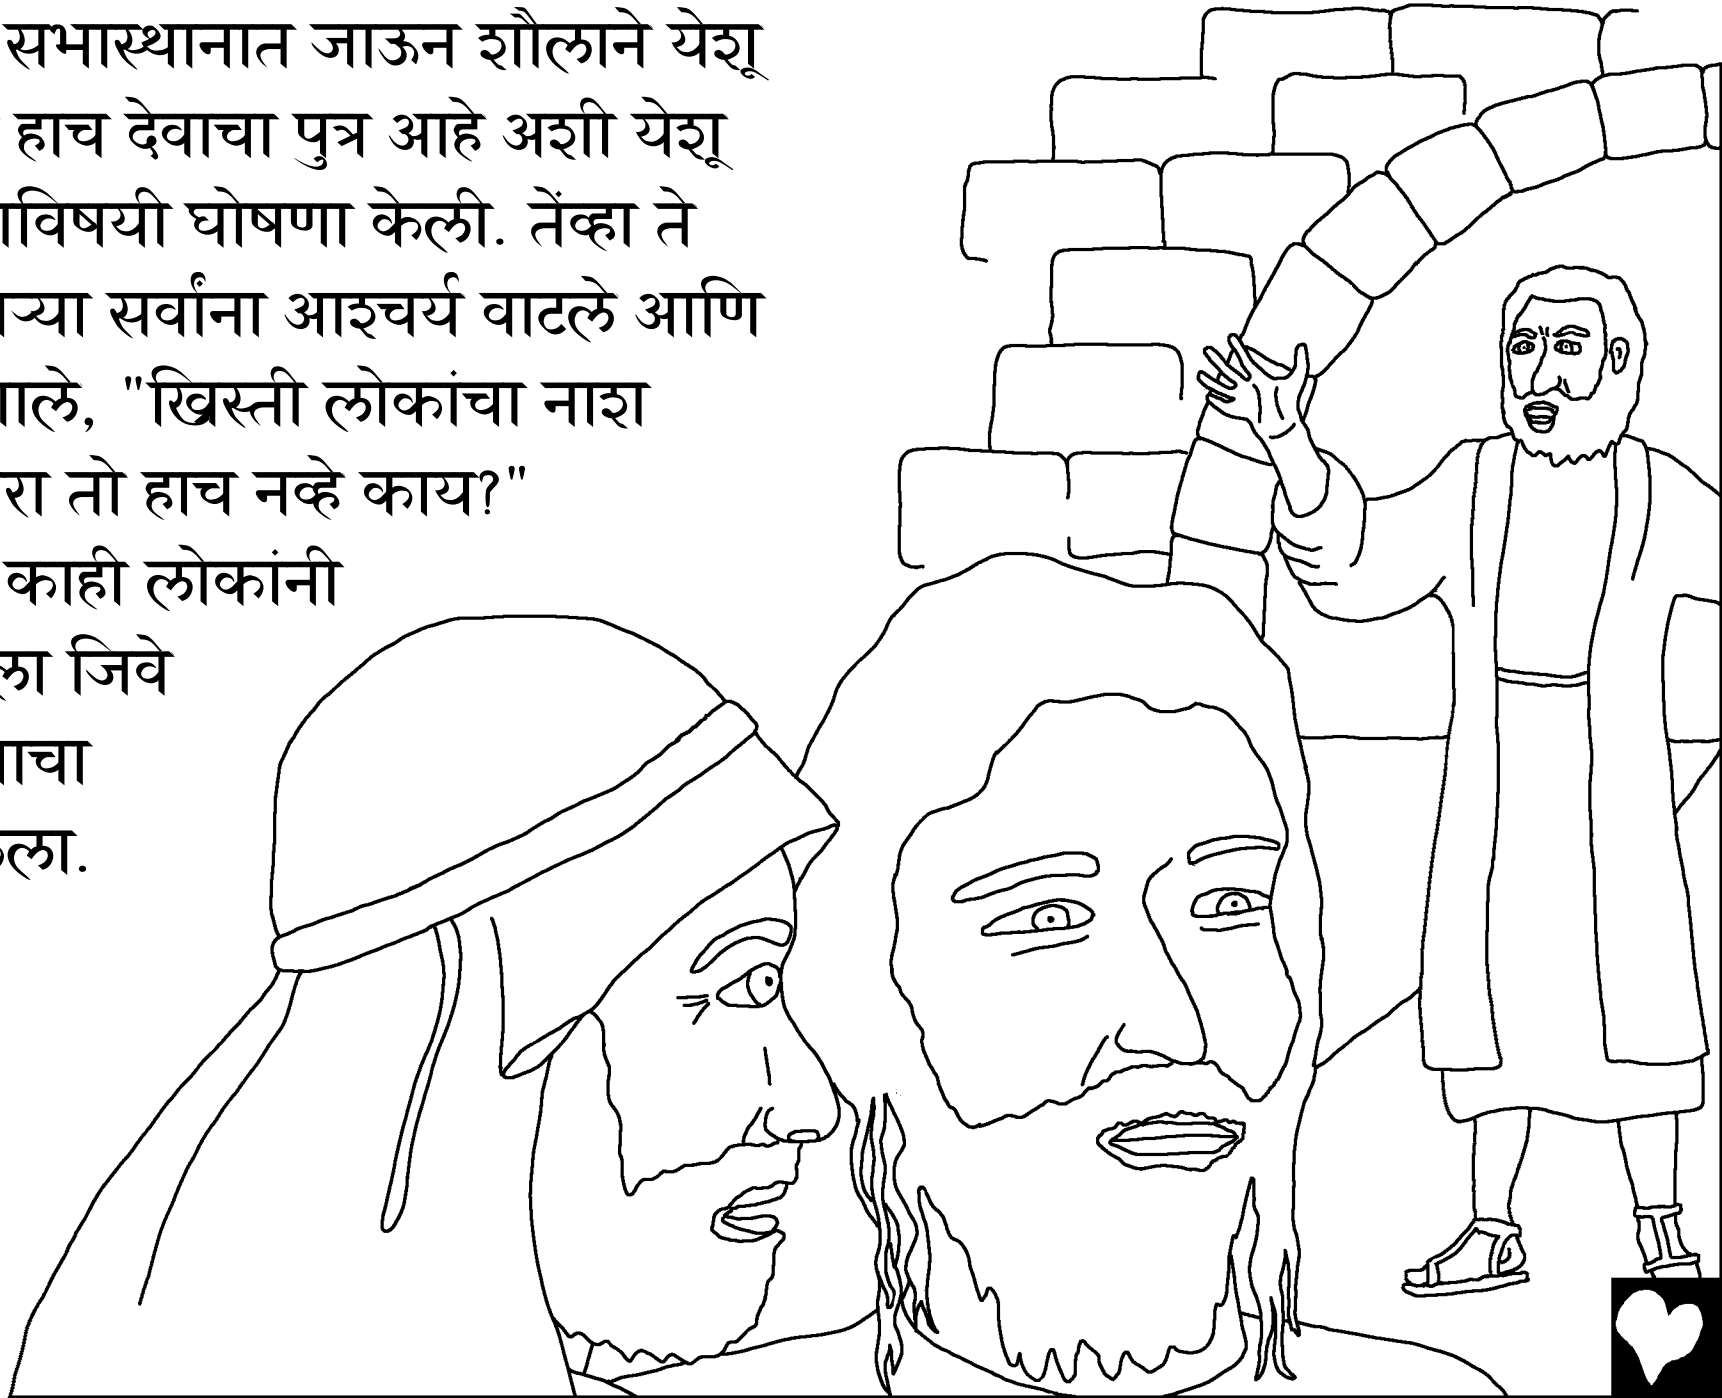 सभास्थानात जाऊन शौलाने येशू
हाच देवाचा पुत्र आहे अशी येशू
घोषणा केली. तेंव्हा ते
सर्वांना आश्चर्य वाटले आणि
"ख्रिस्ती लोकांचा नाश
तो हाच नव्हे काय?"
काही लोकांनी
जिवे